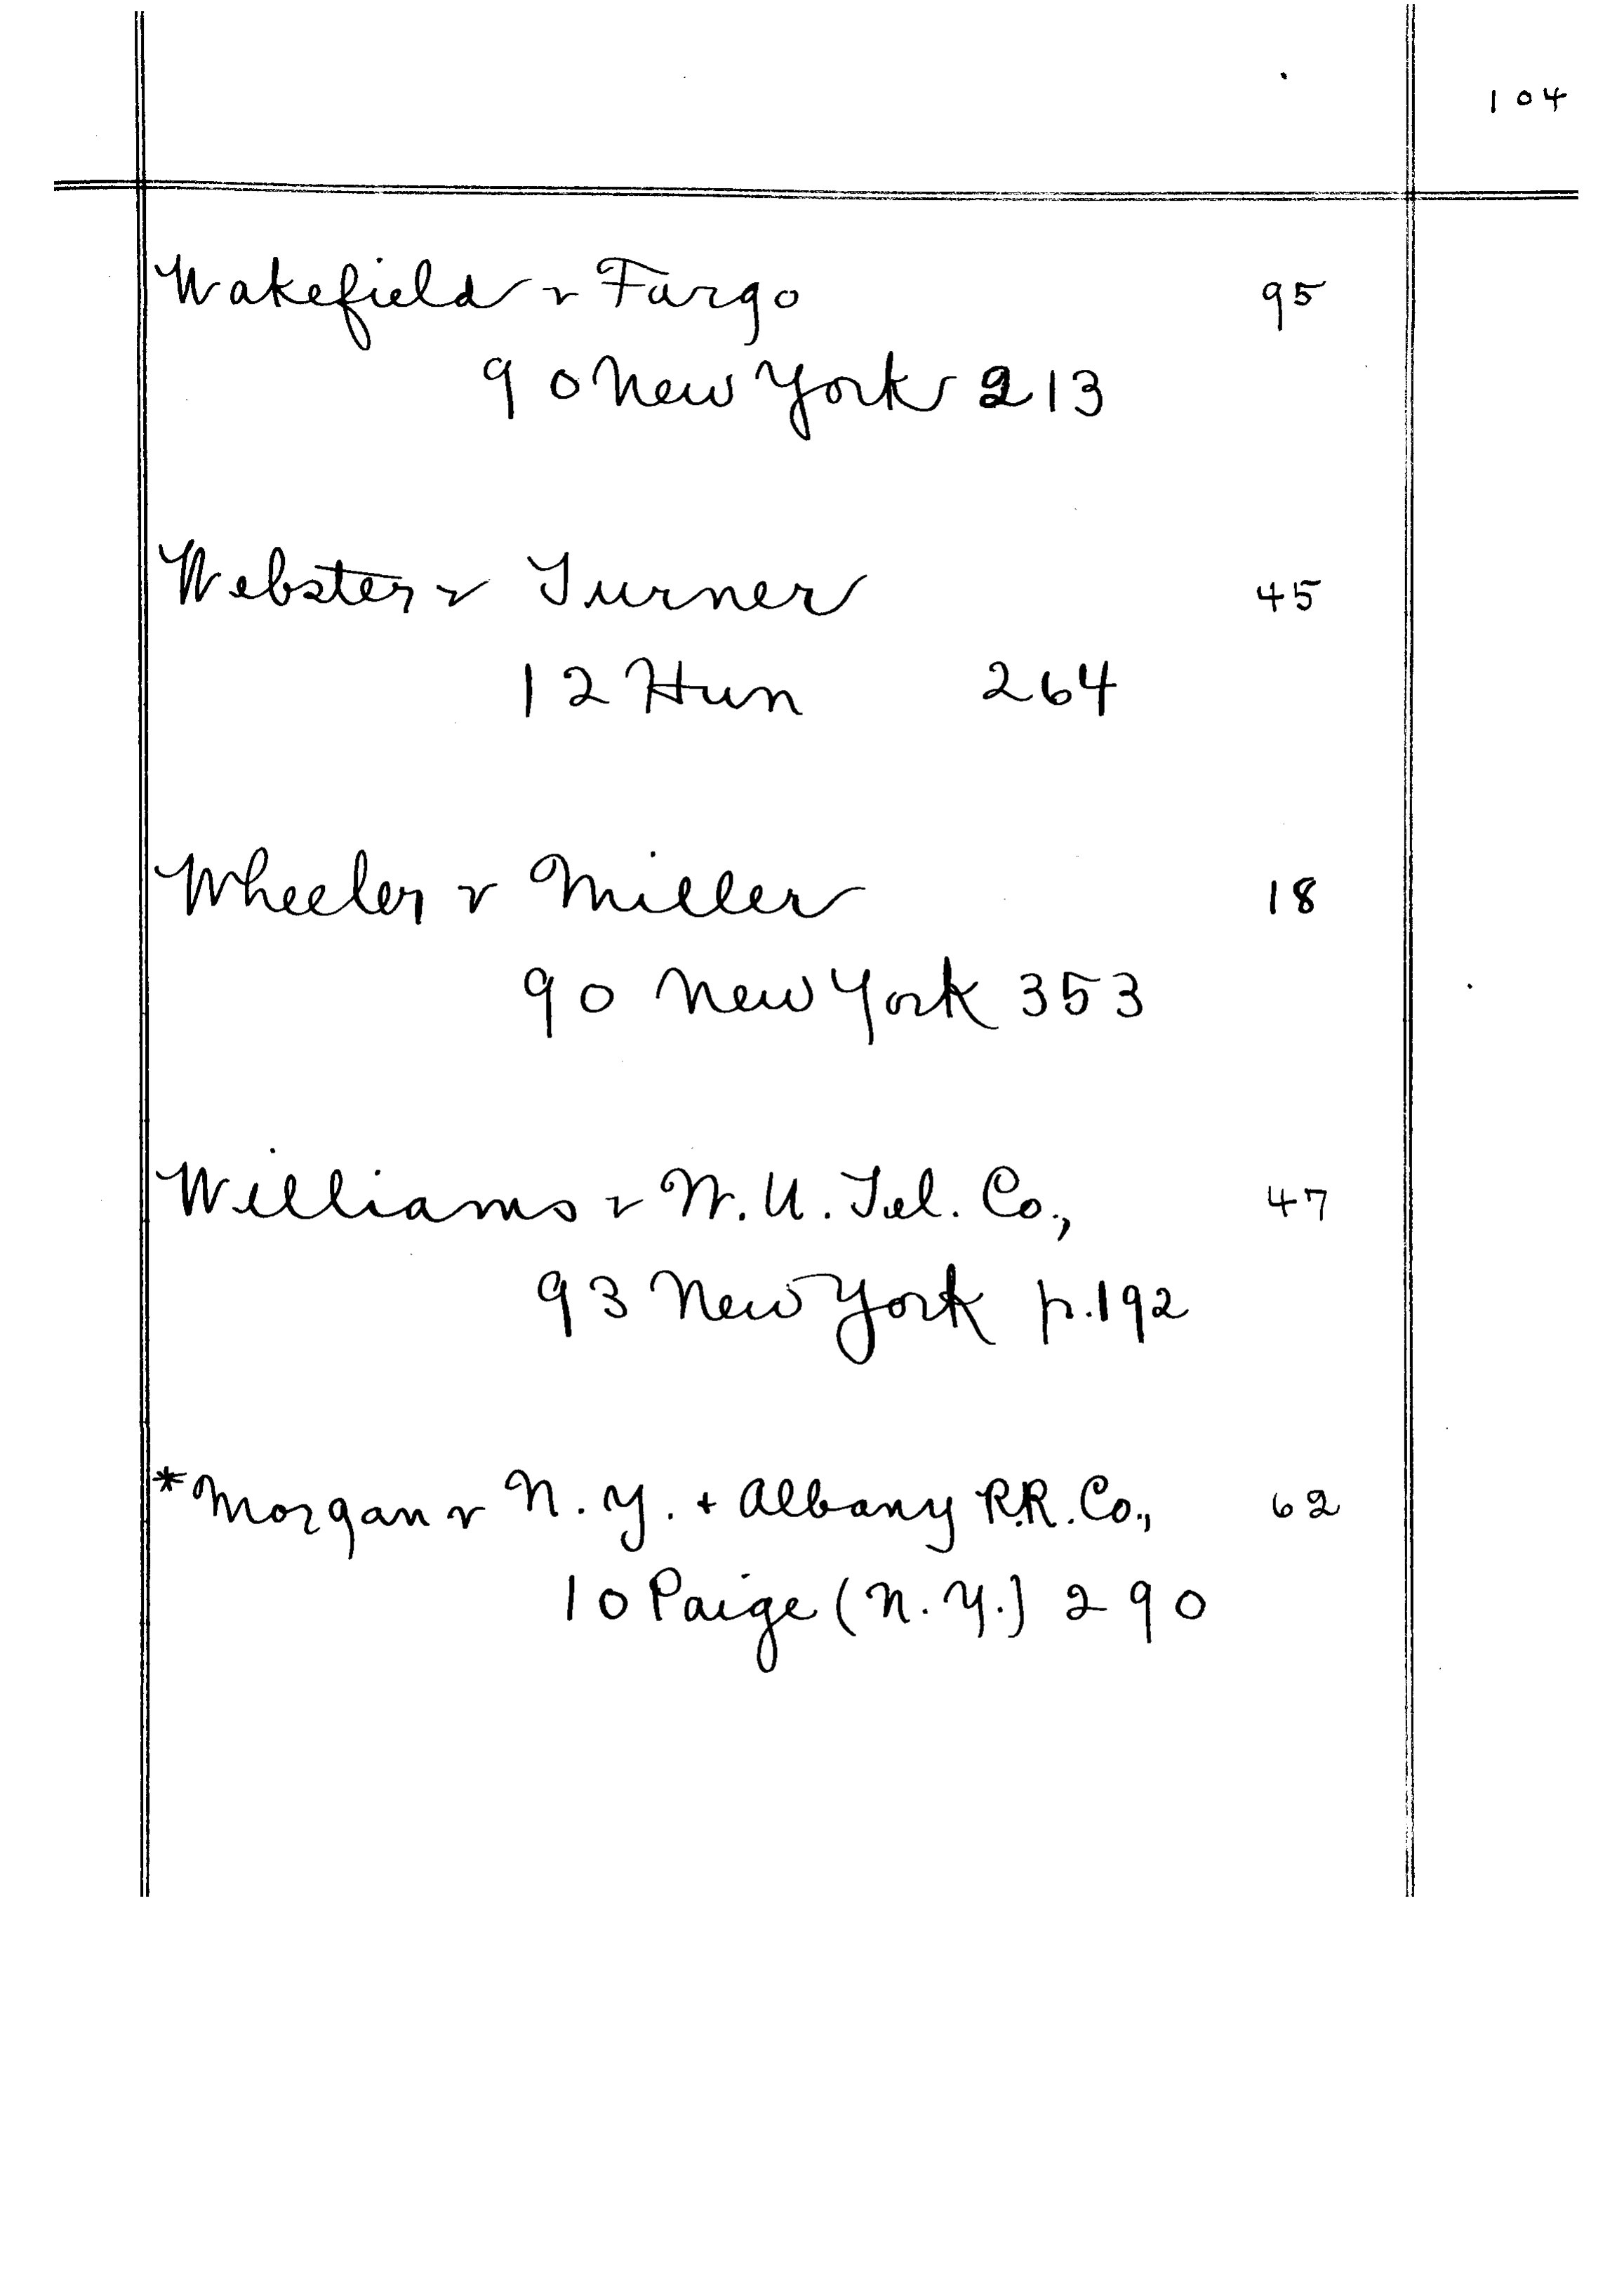 104
Wakefield v Fargo 95
90 New York 213
Webster v Turner 45
12 Hun 264
Wheeler v Miller 18
90 New York 353
Williams v W. U. Tel. Co., 47
93 New York p. 192
*Morgan v N. Y. + Albany R.R. Co., 62
10 Paige (N. Y.) 290